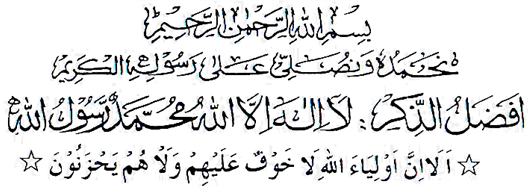 بِسْمِ اللهِ الرَّحْمٰنِ الرَّحِيْمِ
نَحْمَدُهٗ وَنُصَلِّیْ عَلٰی رَسُوْلِهِ الْكَرِيْمِ
اَفْضَلُ الذِّكْرِ : لَا اِلٰهَ اِلَّا اللهُ مُحَمَّدٌ رَّسُوْلُ اللهِ
☆ اَلَا اِنَّ اَوْلِيَاءَ اللهِ لَا خَوْفٌ عَلَيْهِمْ وَلَا هُمْ يَحْزَنُوْنَ ☆